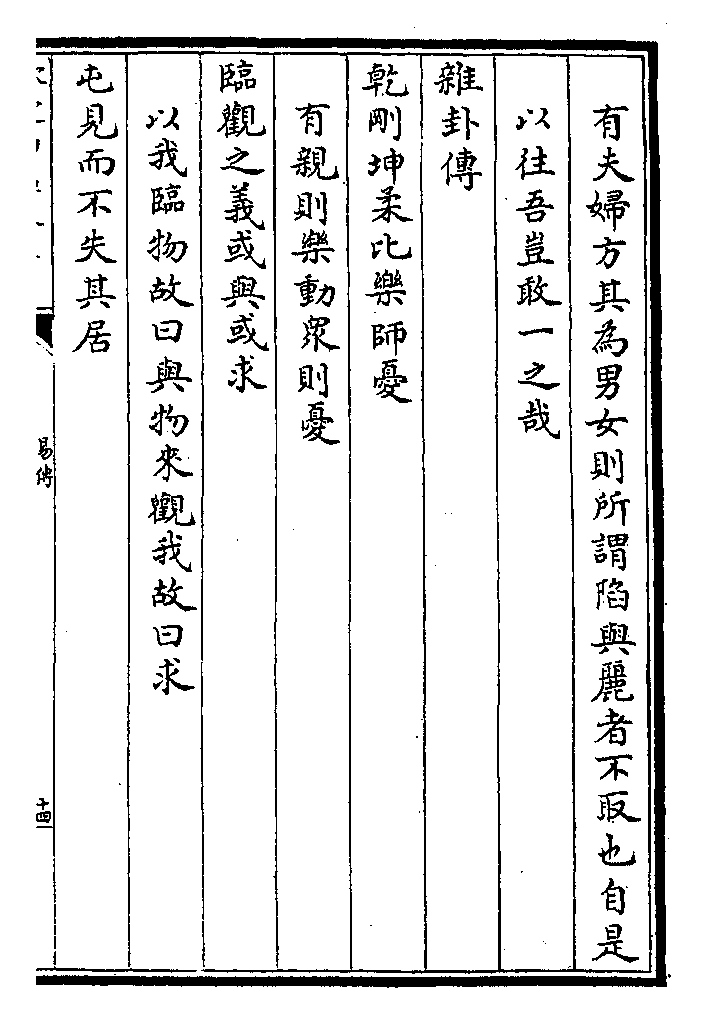 有夫婦方其為男女則所謂陷與麗者不取也自是
以往吾豈敢一之哉
雜卦傳
乾剛坤柔比樂師憂
有親則樂動眾則憂
臨觀之義或與或求
以我臨物故曰與物來觀我故曰求
屯見而不失其居
易傳
十四